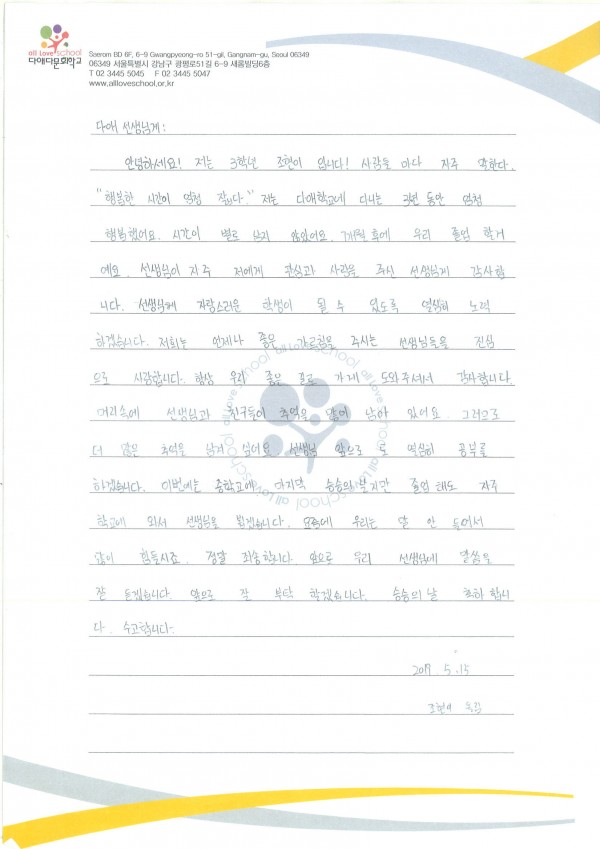 all Love school
다애다문화학교
Saerom BD 6F, 6-9 Gwangpyeong-ro 51-gil, Gangnam-gu, Seoul 06349
06349 서울특별시 강남구 광평로51길 6-9 새롬빌딩6층
T 02 3445 5045 F 02 3445 5047
www.allloveschool.or.kr
다애 선생님께:
안녕하세요! 저는 3학년 조현이 입니다! 사람들 마다 자주 말한다.
"행복한 시간이 엄청 짧다." 저는 다애학교에 다니는 3년 동안 엄청
행복했어요. 시간이 별로 남지 않았어요. 7개월 후에 우리 졸업 할거
예요. 선생님이 자주 저에게 관심과 사랑을 주신 선생님께 감사합
니다. 선생님께 자랑스러운 학생이 될 수 있도록 열심히 노력
하겠습니다. 저희는 언제나 좋은 가르침을 주시는 선생님들을 진심
으로 사랑합니다. 항상 우리 좋은 길로 가게 도와주셔서 감사합니다.
머리속에 선생님과 친구들이 추억을 많이 남아 있어요. 그러므로
더 많은 추억을 남겨 싶어요. 선생님 앞으로 도 열심히 공부를
하겠습니다. 이번에는 중학교에 마지막 승승의 날지만 졸업 해도 자주
학교에 와서 선생님을 뵙겠습니다. 요즘에 우리는 말 안 들어서
많이 힘들시죠. 정말 죄송합니다. 앞으로 우리 선생님에 말씀을
잘 듣겠습니다. 앞으로 잘 부탁 할겠습니다. 승승의 날 축하 합니
다. 수고합니다.
2017. 5. 15
조현이 드림
all Love school all Love school all Love school